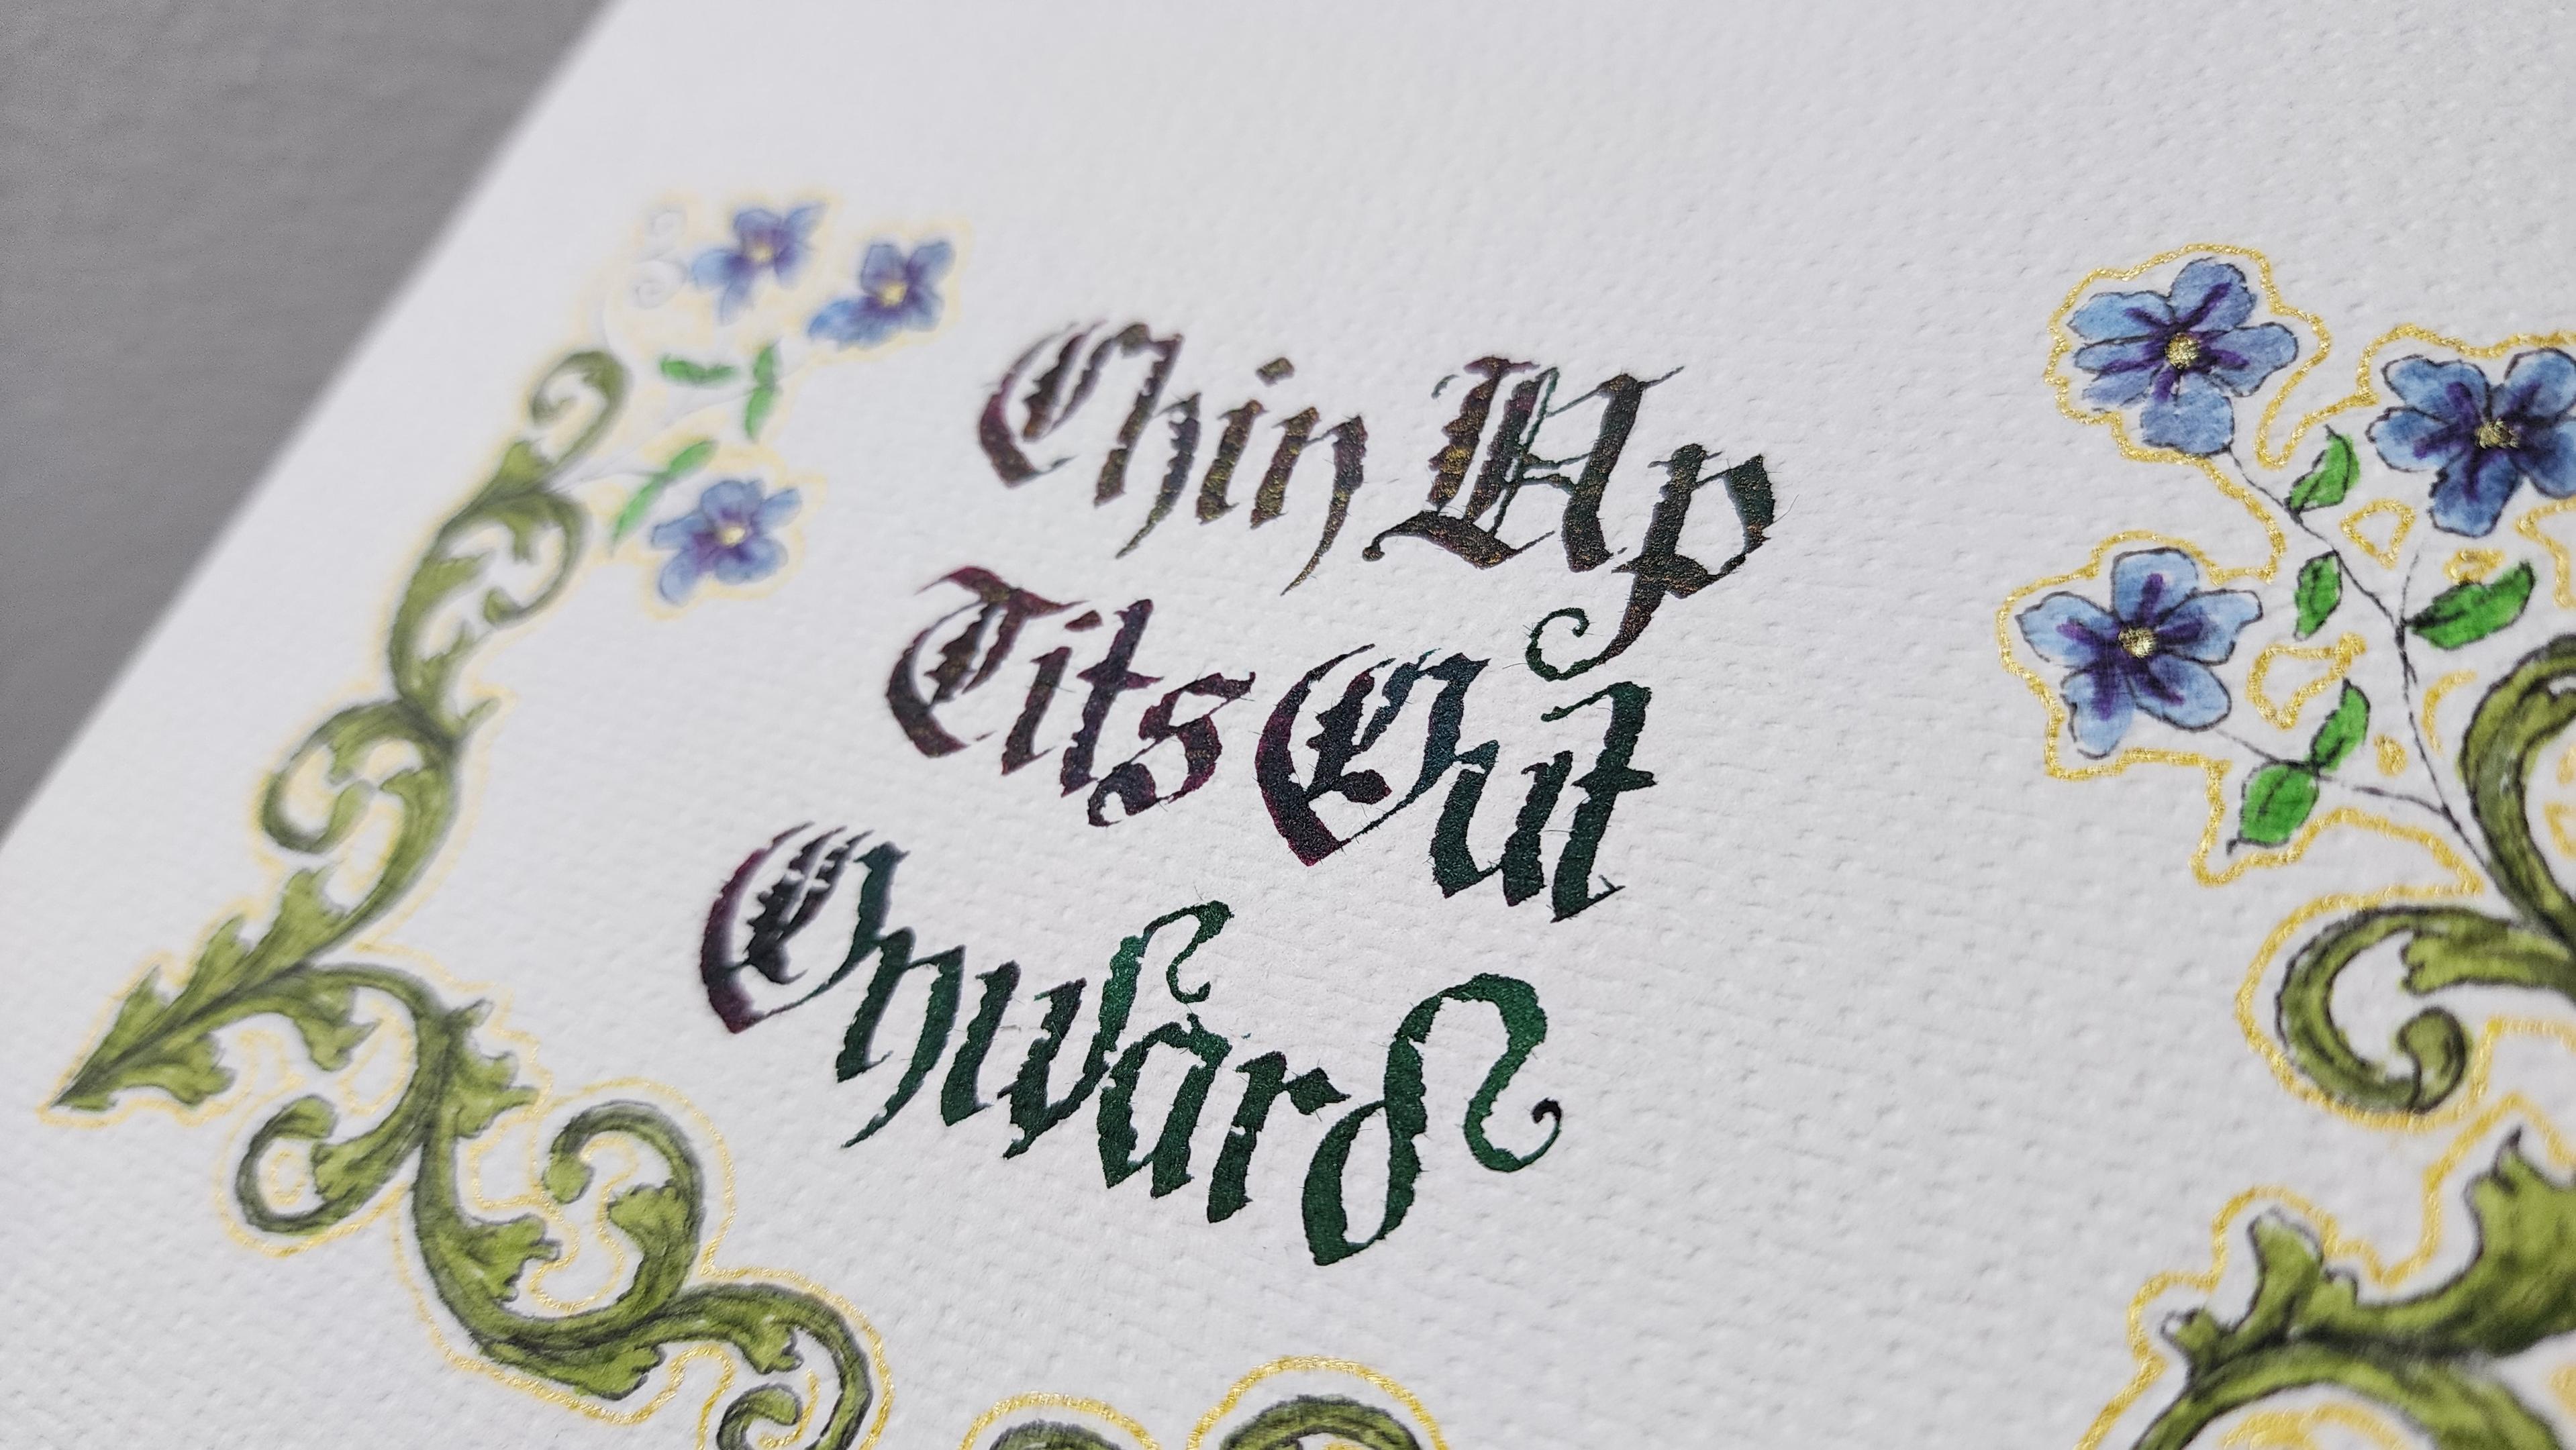 Chin Up
Tits Out
Onward